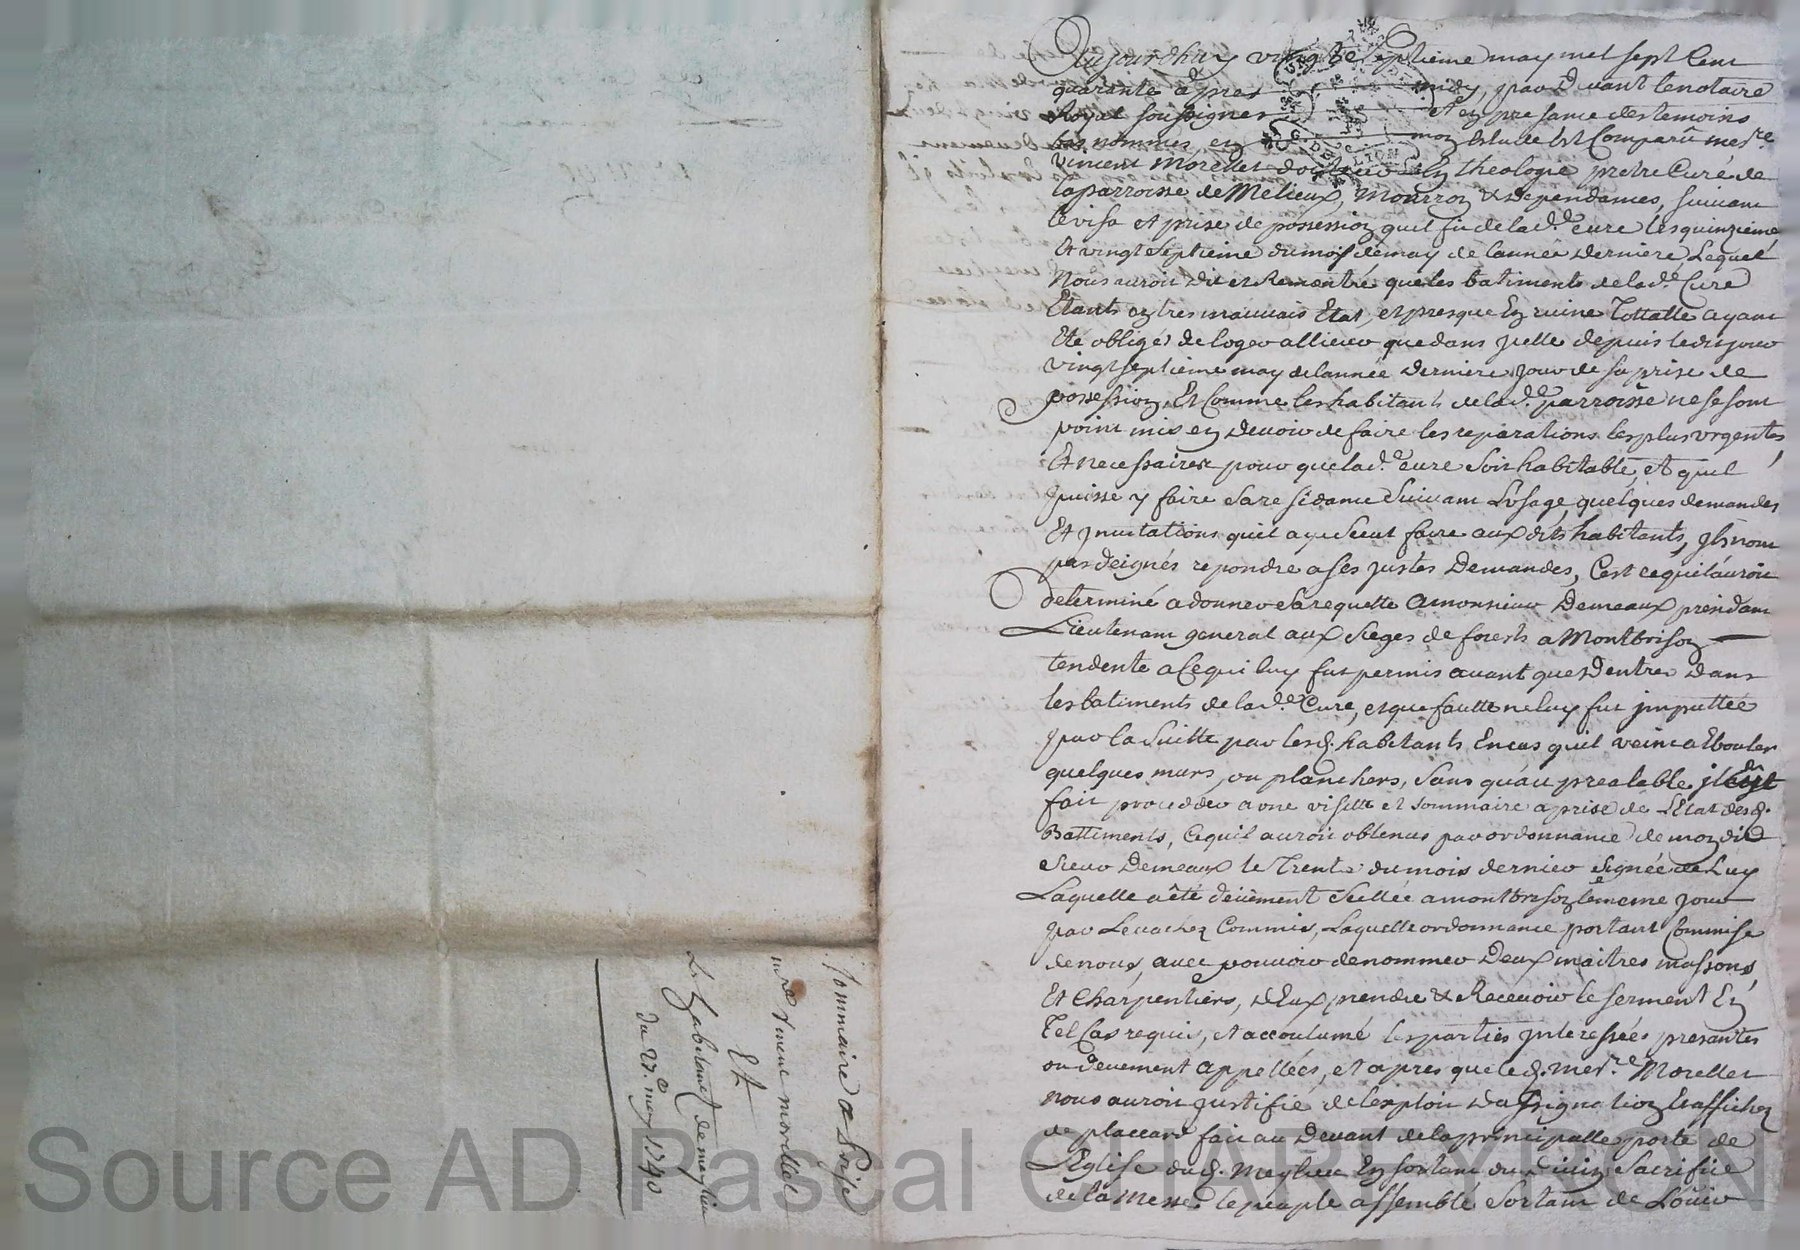 Aujourdhuy vingt Septieme may mil sept Cent
quarante apres midy, par Devant le notaire
Royal soussignes Et en presance des temoins
bas nommes, en mon Estude Est Comparû mes.re
Vincent Morellet docteur En theologie pretre Curé de
la parroisse de Melieux, Mourron & dependances, suivant
le visa et prise de possession quil fit de lad.e cure les quinzieme
Et vingt Septieme du mois de may de l'année derniere Lequel
Nous auroit dit et Remontré que les batiments de lad.e Cure
Etants en tres mauvais Etat, et presque En ruine Tottalle ayant
Eté obligés de loger allieur que dans jcelle depuis led. jour
vingt septieme may de lannée derniere jour de sa prise de
possession, Et Comme les habitants de lad.e parroisse ne se sont
point mis en Devoir de faire les reparations les plus urgentes,
Et necessaires pour que lad.e cure soit habitable, et quil
puisse y faire sa residance suivant Lusage quelques demandes
Et jnvitations quil aye sceut faire aux dits habitants, jls nont
pas deignés repondre a ses justes Demandes, C'est ce quil auroit
determiné a donner sa requette a monsieur Demeaux président
Lieutenant general aux sieges de forests a Montbrison
tendente a ce qui luy fut permis avant que D'entrer dans
les batiments de lad.e Cure, et que fautte ne luy fut jmputtée
par la suitte par lesd. habitants En cas quil veint a Ebouler
quelques murs, ou planchers, sans qu'au prealable jl eut
fait procedder a une visitte et sommaire aprise de L'Etat desd.
Battiments, Ce quil auroit obtenus par ordonnance de mondit
Sieur Demeaux le Trente du mois dernier signée de Luy
Laquelle a été dêüement scellée a montbrison le meme jour
par Levachez Commis, Laquelle ordonnance portant Commise
de nous, avec pouvoir de nommer Deux maitres massons
Et Charpentiers, d'Eux prendre & Recevoir le serment En
Tel Cas requis, et accoutumé les parties jnteressées presantes
ou deuement appellées, et apres que led. mes.re Morellet
nous auroit justifié de l'exploit Dassignation Et affiches
de placcard fait au Devant de la principalle porte de
L'Eglise dud. Meylieu En sortant du Divin Sacrifice
de la Messe le peuple assemblé sortant de L'ouir
Sommaire a Prise
mre Vincent morellet
Et
Les habitants de meylieu
du 27.e may 1740
Source AD Pascal CHAREYRON